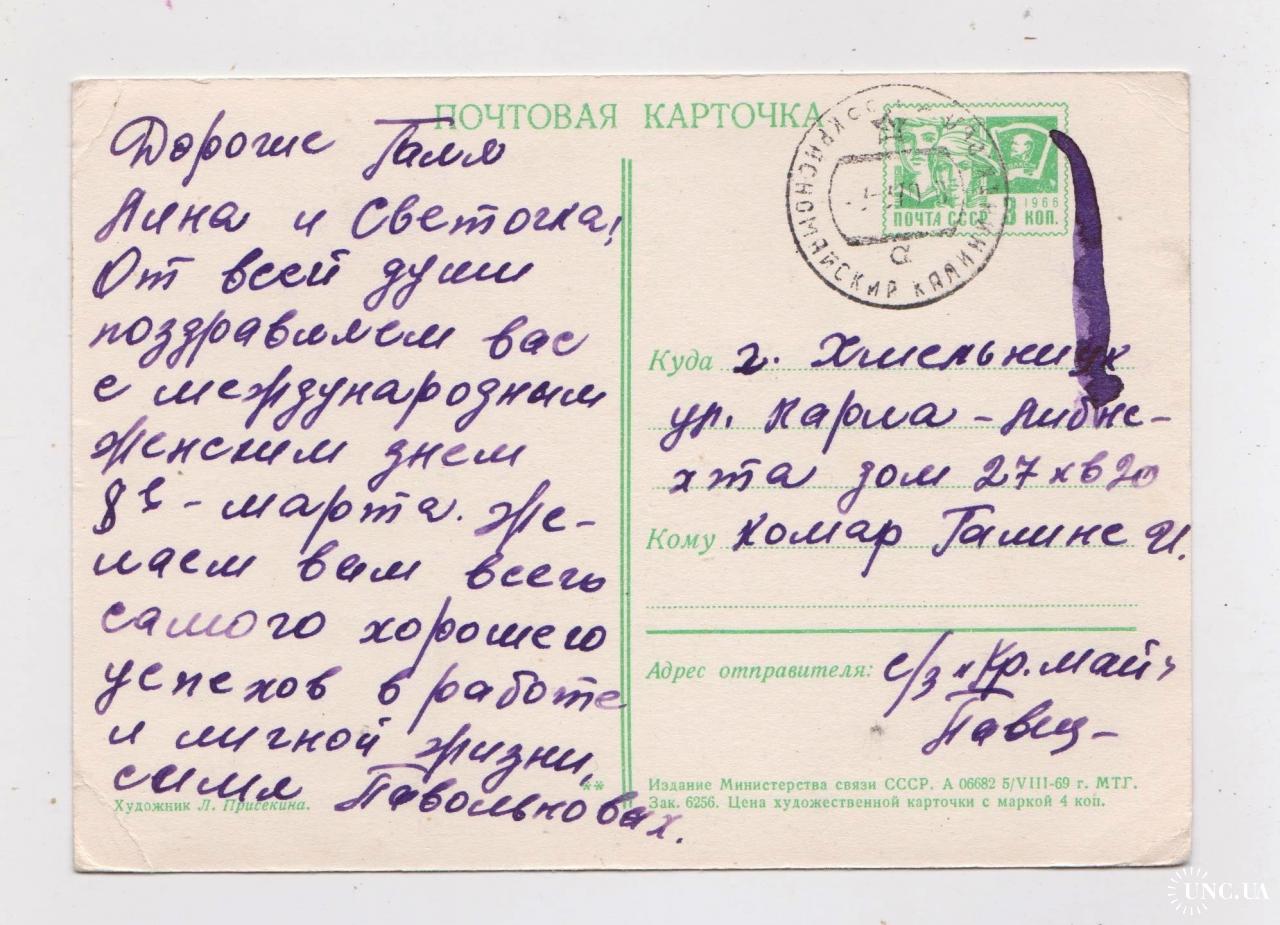 ПОЧТОВАЯ КАРТОЧКА
Дорогие Галя
Анна и Светочка!
От всей души
поздравляем вас
с международным
женским днем
8е - марта. Же-
лаем вам всего
самого хорошего
успехов в работе
и личной жизни,
Художник Л. Присекина.
**
ПОЧТА СССР
1966
3 КОП.
ВЛКСМ
КРАСНОАРМЕЙСКИЙ
а
Куда г. Хмельник
ул. Карла - Либкне-
хта дом 27 кв 20
Кому Комар Галине И.
Адрес отправителя: с/з "Кр. май"
Издание Министерства связи СССР. А 06682 5/VIII-69 г. МТГ.
Зак. 6256. Цена художественной карточки с маркой 4 коп.
UNC.UA